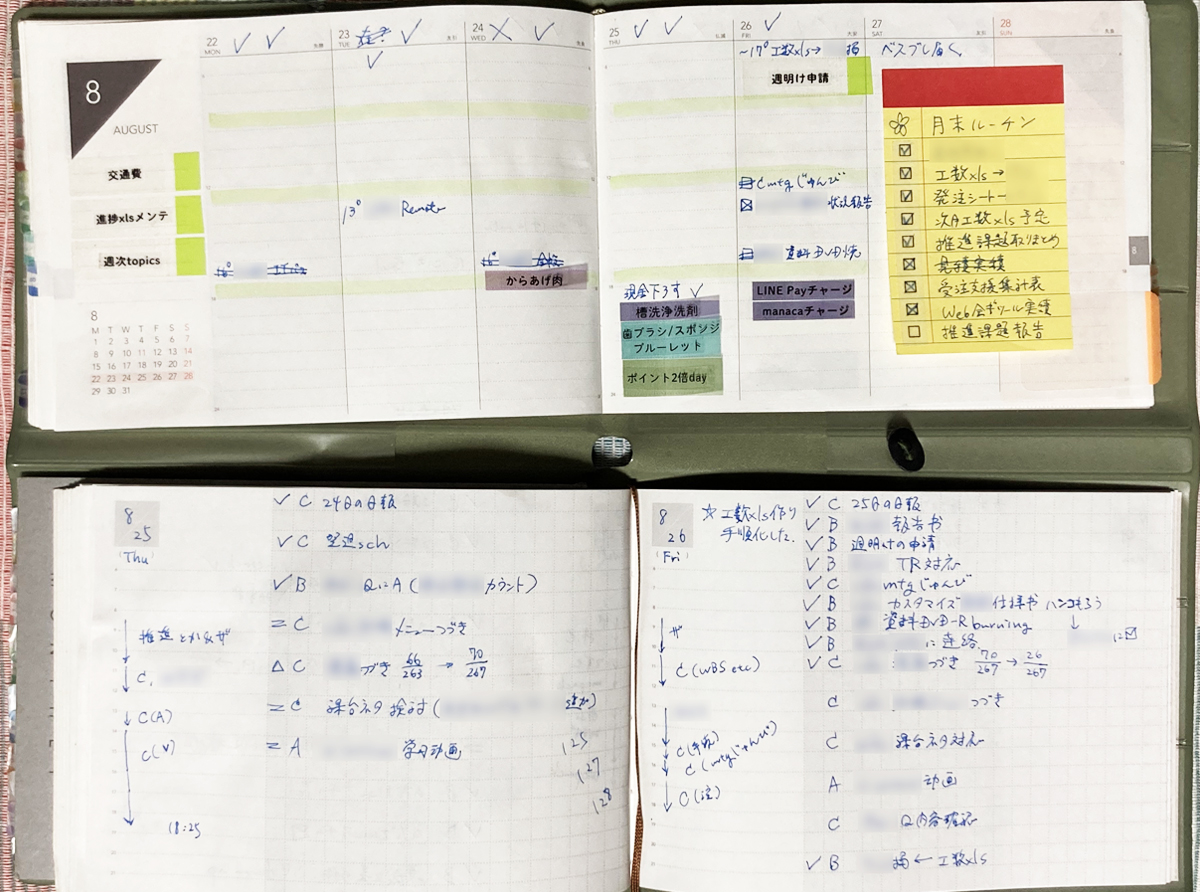 8
AUGUST
交通費
進捗xlsメンテ
週次topics
8
M T W T F S S
1 2 3 4 5 6 7
8 9 10 11 12 13 14
15 16 17 18 19 20 21
22 23 24 25 26 27 28
29 30 31
22
MON
23
TUE
13° Remote
24
WED
からあげ肉
25
THU
現金下ろす ✓
槽洗浄洗剤
歯ブラシ/スポンジ
ブルーレット
ポイント2倍day
26
FRI
~17° 工数xls→
週明け申請
Cmtgじゅんび
状況報告
資料DVD焼
LINE Payチャージ
manacaチャージ
27
SAT
ベスプレ届く
28
SUN
月末ルーチン
☑ 工数xls→
☑ 発注シート
☑ 次月工数xls予定
☑ 推進課題取りまとめ
☒ 見積実績
☒ 受注支援集計表
☒ Web会ギツール実績
☐ 推進課題報告
8
25
(Thu)
推進とかなぜ
C.
C(A)
C(V)
18:25
✓ C 24日の日報
✓ C 望遠sch
✓ B QにA( カウント)
= C メニューつづき
△ C つづき 66/263 → 70/267
= C 課台ネタ検討( 追加)
= A 学習動画
125
127
128
8
26
(Fri)
☆ 工数xls作り
手順化した.
C(WBS etc)
C(mtgじゅんび)
C(注)
✓ C 25日の日報
✓ B 報告書
✓ B 週明けの申請
✓ B TR対応
✓ C mtgじゅんび
✓ B カスタマイズ 仕様書 ハンコもらう
✓ B 資料DVD-R burning
✓ B に連絡
に☑
✓ C つづき 70/267 → 26/267
C つづき
C 課台ネタ対応
A 動画
C Q内容確認
✓ B ← 工数xls